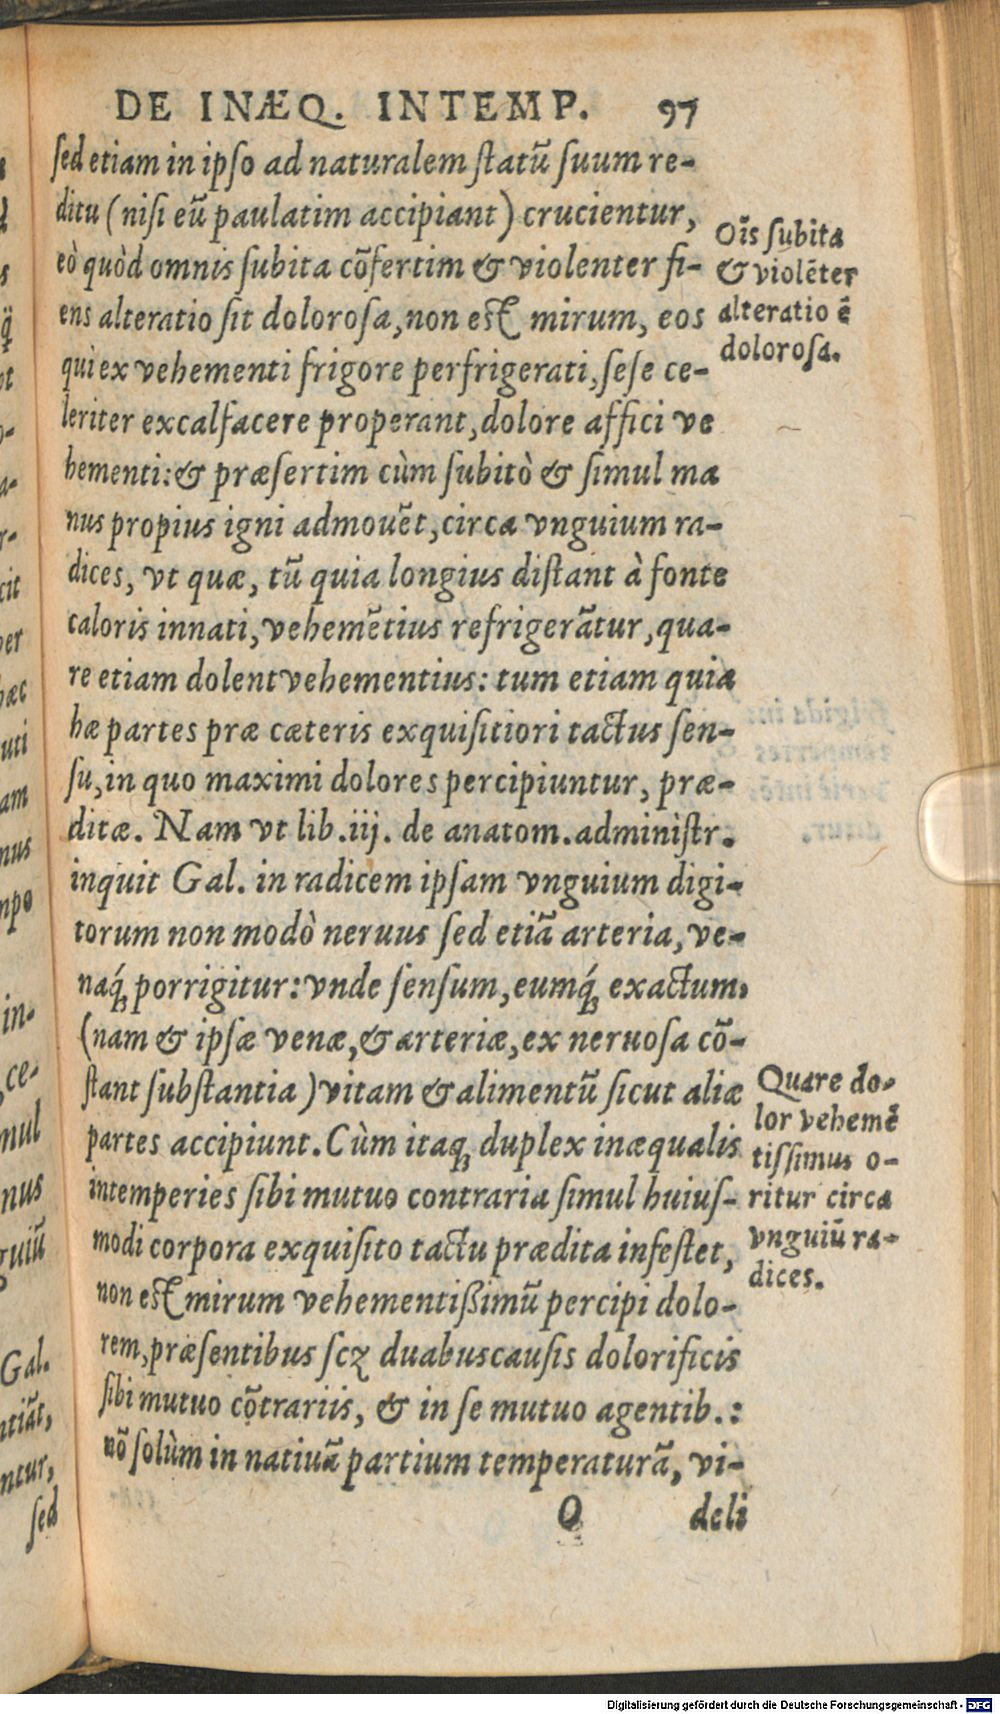 DE INÆQ. INTEMP. 97
sed etiam in ipso ad naturalem statū suum re-
ditu (nisi eū paulatim accipiant) crucientur,
eò quòd omnis subita cōfertim & violenter fi-
ens alteratio sit dolorosa, non est mirum, eos
qui ex vehementi frigore perfrigerati, sese ce-
leriter excalfacere properant, dolore affici ve
hementi: & præsertim cùm subitò & simul ma
nus propius igni admouēt, circa vnguium ra-
dices, vt quæ, tū quia longius distant à fonte
caloris innati, vehemētius refrigerātur, qua-
re etiam dolent vehementius: tum etiam quia
hæ partes præ cæteris exquisitiori tactus sen-
su, in quo maximi dolores percipiuntur, præ-
ditæ. Nam vt lib. iij. de anatom. administr.
inquit Gal. in radicem ipsam vnguium digi-
torum non modò neruus sed etiā arteria, ve-
naq́; porrigitur: vnde sensum, eumq́; exactum,
(nam & ipsæ venæ, & arteriæ, ex neruosa cō-
stant substantia) vitam & alimentū sicut aliæ
partes accipiunt. Cùm itaq; duplex inæqualis
intemperies sibi mutuo contraria simul huius-
modi corpora exquisito tactu prædita infestet,
non est mirum vehementißimū percipi dolo-
rem, præsentibus scꝫ duabus causis dolorificis
sibi mutuo cōtrariis, & in se mutuo agentib.:
nō solùm in natiuā partium temperaturā, vi-
O deli
Oīs subita
& violēter
alteratio ē
dolorosa.
Quare do-
lor vehemē
tissimus o-
ritur circa
vnguiū ra-
dices.
cit
per
hæc
uti
am
nus
mpo
in-
ce-
mul
nus
guiū
Gal.
ntiāt,
ntur,
sed
Digitalisierung gefördert durch die Deutsche Forschungsgemeinschaft - DFG